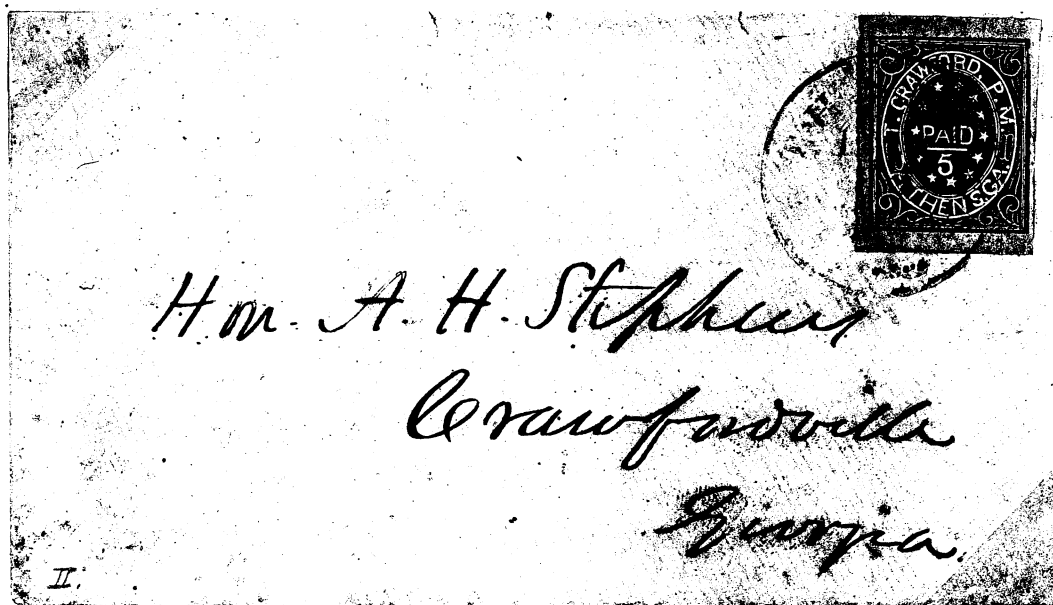 T. CRAWFORD, P.M.
PAID
5
ATHENS, GA.
Hon. A. H. Stephens
Crawfordville
Georgia.
II.